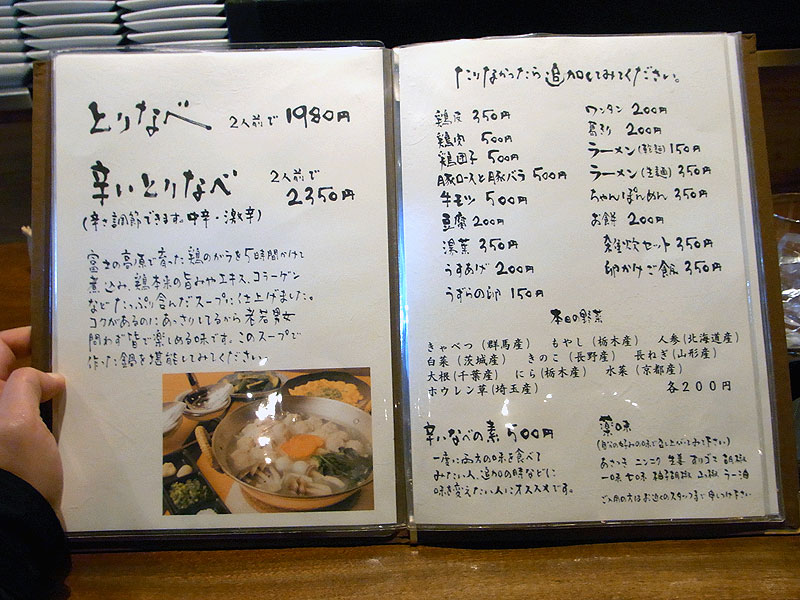 とりなべ 2人前で 1980円
辛いとりなべ 2人前で
2350円
(辛さ調節できます。中辛・激辛)
富士の高原で育った鶏のがらを5時間かけて
煮込み、鶏本来の旨みやエキス、コラーゲン
などたっぷり含んだスープに仕上げました。
コクがあるのにあっさりしてるから老若男女
問わず皆で楽しめる味です。このスープで
作った鍋を堪能してみてください。
たりなかったら追加してみてください。
鶏皮 350円
鶏肉 500円
鶏団子 500円
豚ロースと豚バラ 500円
牛モツ 500円
豆腐 200円
湯葉 350円
うすあげ 200円
うずらの卵 150円
ワンタン 200円
葛きり 200円
ラーメン 150円
ラーメン (生麺) 350円
ちゃんぽんめん 350円
お餅 200円
雑炊セット 350円
卵かけご飯 350円
本日の野菜
きゃべつ (群馬産) もやし (栃木産) 人参(北海道産)
白菜 (茨城産) きのこ (長野産) 長ねぎ(山形産)
大根(千葉産) にら(栃木産) 水菜 (京都産)
ホウレン草(埼玉産) 各200円
辛いなべの素 500円
一度に両方の味を食べて
みたい人、追加の時などに
味を変えたい人にオススメです。
薬味
(自分の好みの味で召し上がってみて下さい)
あさつき ニンニク 生姜 すりゴマ 胡椒
一味 七味 柚子胡椒 山椒 ラー油
ご入用の方はお近くのスタッフまで申しつけ下さい